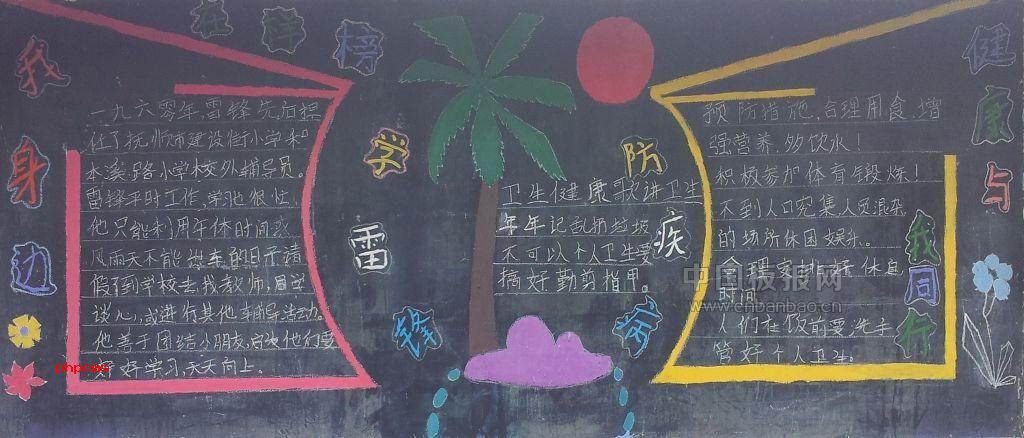 榜样在我身边
学雷锋
一九六零年,雷锋先后担
任了抚顺市建设街小学和
本溪路小学校外辅导员。
雷锋平时工作,学习很忙,
他只能利用午休时间或
风雨天不能出车的日子请
假到学校去找教师,同学
谈心,或进行其他辅导活动。
他善于团结小朋友,启发他们要
好好学习,天天向上。
防疾病
卫生健康歌讲卫生
年年记乱扔垃圾
不可以个人卫生要
搞好勤剪指甲。
健康与我同行
预防措施,合理用食,增
强营养,多饮水!
积极参加体育锻炼!
不到人口密集人员混杂
的场所休闲娱乐。
合理安排好休息
时间
人们在饭前要洗手
管好个人卫生。
中国板报网
www.cnbanbao.cn
phpcms